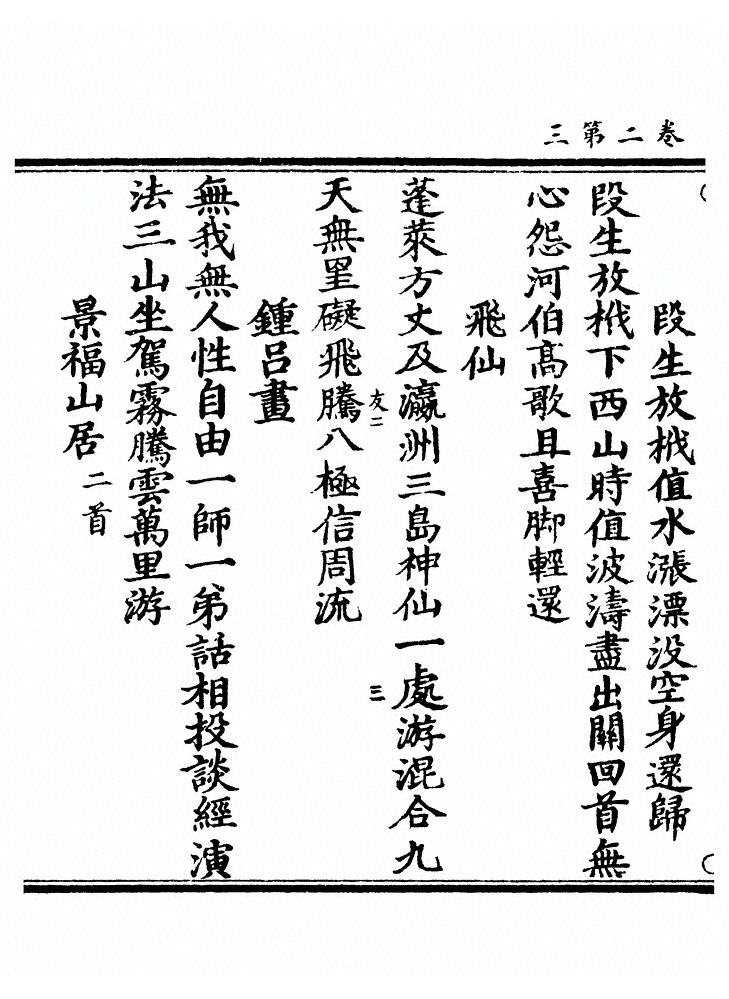 卷二第三
段生放栰值水漲漂没空身還歸
段生放栰下西山時值波濤盡出關回首無
心怨河伯高歌且喜脚輕還
飛仙
蓬萊方丈及瀛洲三島神仙一處游混合九
友二 三
天無罣礙飛騰八極信周流
鍾吕畫
無我無人性自由一師一弟話相投談經演
法三山坐駕霧騰雲萬里游
景福山居二首